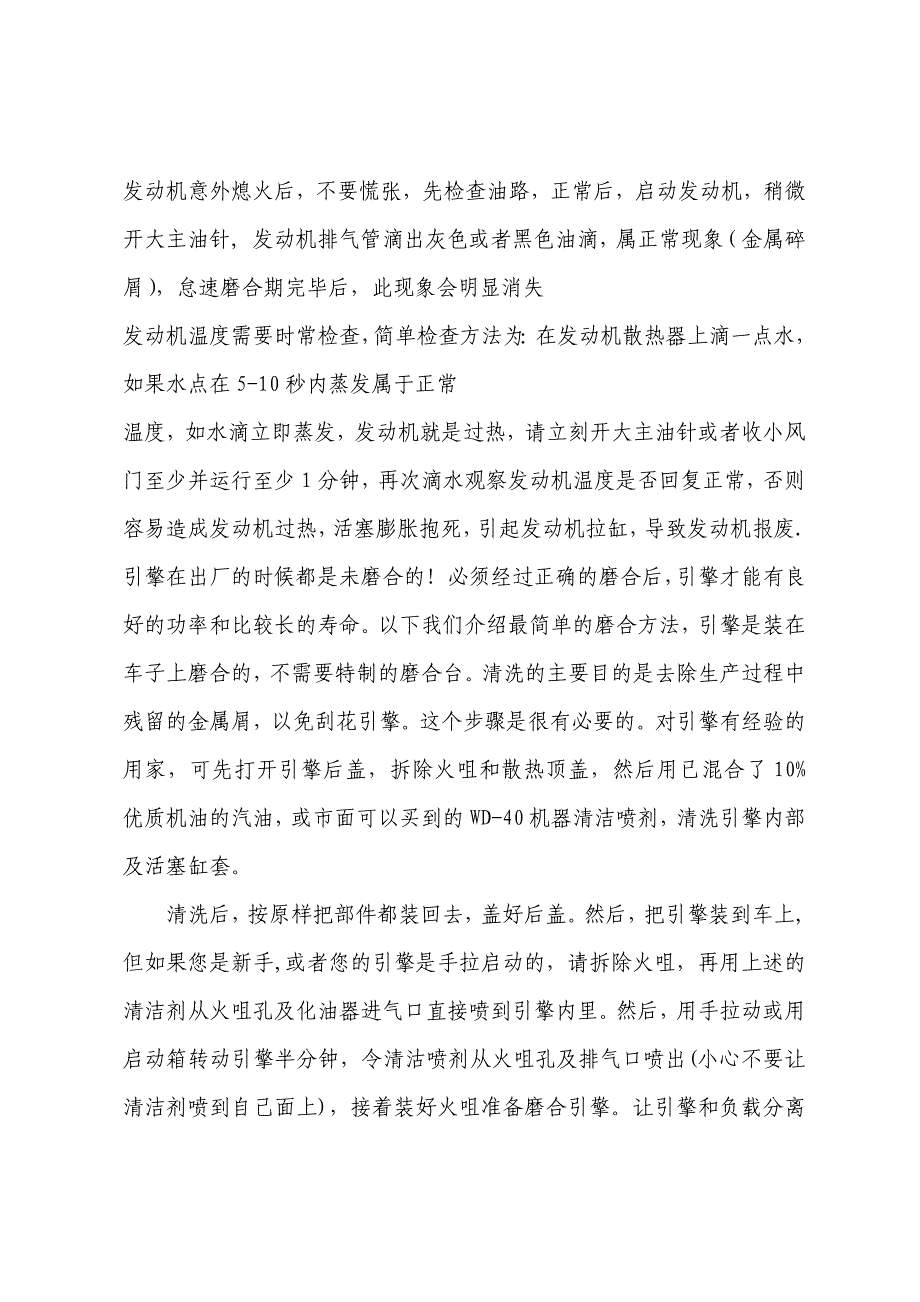 发动机意外熄火后，不要慌张，先检查油路，正常后，启动发动机，稍微
开大主油针, 发动机排气管滴出灰色或者黑色油滴，属正常现象(金属碎
屑)，怠速磨合期完毕后，此现象会明显消失
发动机温度需要时常检查,简单检查方法为:在发动机散热器上滴一点水，
如果水点在 5-10 秒内蒸发属于正常
温度，如水滴立即蒸发，发动机就是过热，请立刻开大主油针或者收小风
门至少并运行至少 1 分钟，再次滴水观察发动机温度是否回复正常，否则
容易造成发动机过热，活塞膨胀抱死，引起发动机拉缸，导致发动机报废.
引擎在出厂的时候都是未磨合的! 必须经过正确的磨合后,引擎才能有良
好的功率和比较长的寿命。以下我们介绍最简单的磨合方法，引擎是装在
车子上磨合的，不需要特制的磨合台。清洗的主要目的是去除生产过程中
残留的金属屑，以免刮花引擎。这个步骤是很有必要的。对引擎有经验的
用家，可先打开引擎后盖，拆除火咀和散热顶盖，然后用已混合了 10%
优质机油的汽油，或市面可以买到的 WD-40 机器清洁喷剂，清洗引擎内部
及活塞缸套。
清洗后，按原样把部件都装回去，盖好后盖。然后，把引擎装到车上，
但如果您是新手,或者您的引擎是手拉启动的，请拆除火咀，再用上述的
清洁剂从火咀孔及化油器进气口直接喷到引擎内里。然后，用手拉动或用
启动箱转动引擎半分钟，令清沽喷剂从火咀孔及排气口喷出(小心不要让
清洁剂喷到自己面上)，接着装好火咀准备磨合引擎。让引擎和负载分离